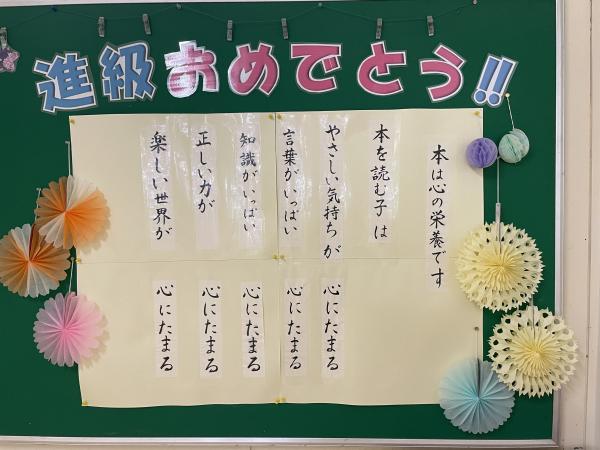 進級おめでとう!!
本は心の栄養です
本を読む子は
やさしい気持ちが 心にたまる
言葉がいっぱい 心にたまる
知識がいっぱい 心にたまる
正しい力が 心にたまる
楽しい世界が 心にたまる